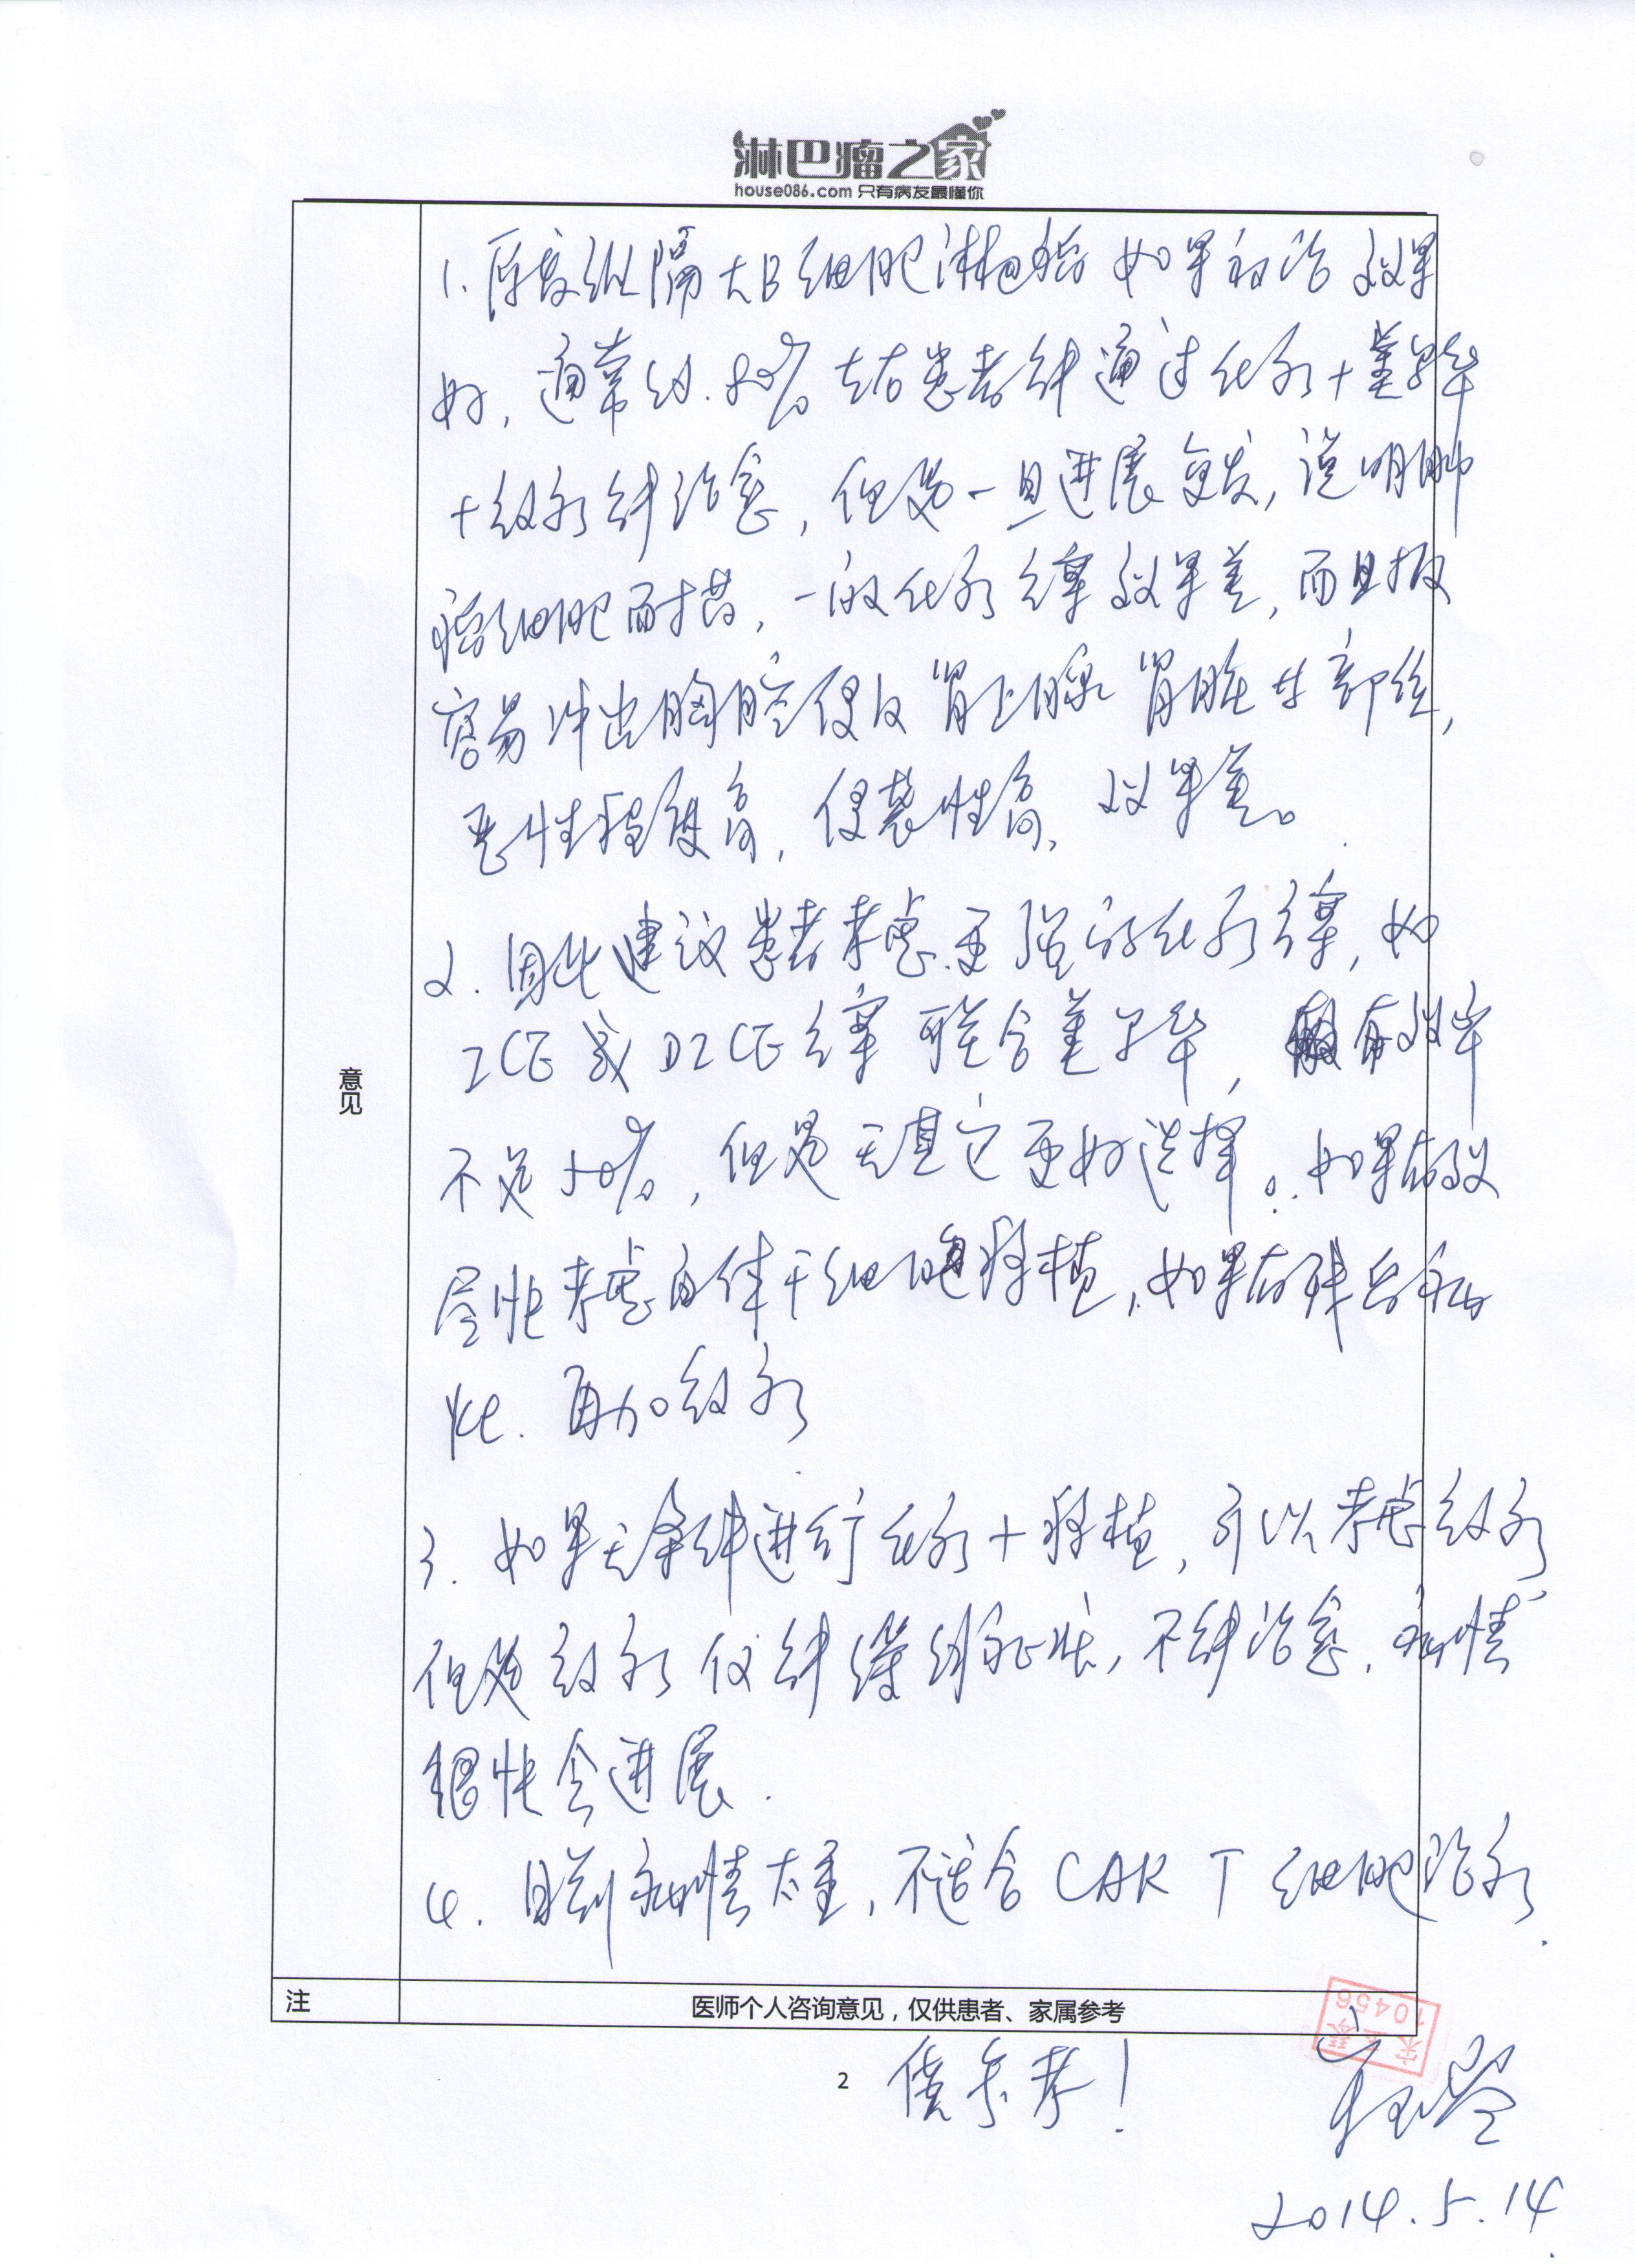 淋巴瘤之家
house086.com 只有病友最懂你
意见
1. 原发纵隔大B细胞淋巴瘤 如果初治效果
好，通常约80%左右患者能通过化疗+美罗华
+放疗能治愈，但是一旦进展复发，说明肿
瘤细胞耐药，一般化疗方案效果差，而且极
容易冲出胸腔侵及肾上腺 肾脏等部位，
恶性程度高，侵袭性高，效果差。
2. 因此建议患者考虑更强的化疗方案，如
ICE或DICE方案联合美罗华，有效率
不足50%，但是无其它更好选择。如果有效
尽快考虑自体干细胞移植，如果有残留病
灶. 再加放疗
3. 如果无条件进行化疗+移植，可以考虑放疗
但是放疗仅能缓解症状，不能治愈，病情
很快会进展.
4. 目前病情太重，不适合CAR T细胞治疗.
注
医师个人咨询意见，仅供患者、家属参考
10456
2
供参考！
2014.5.14